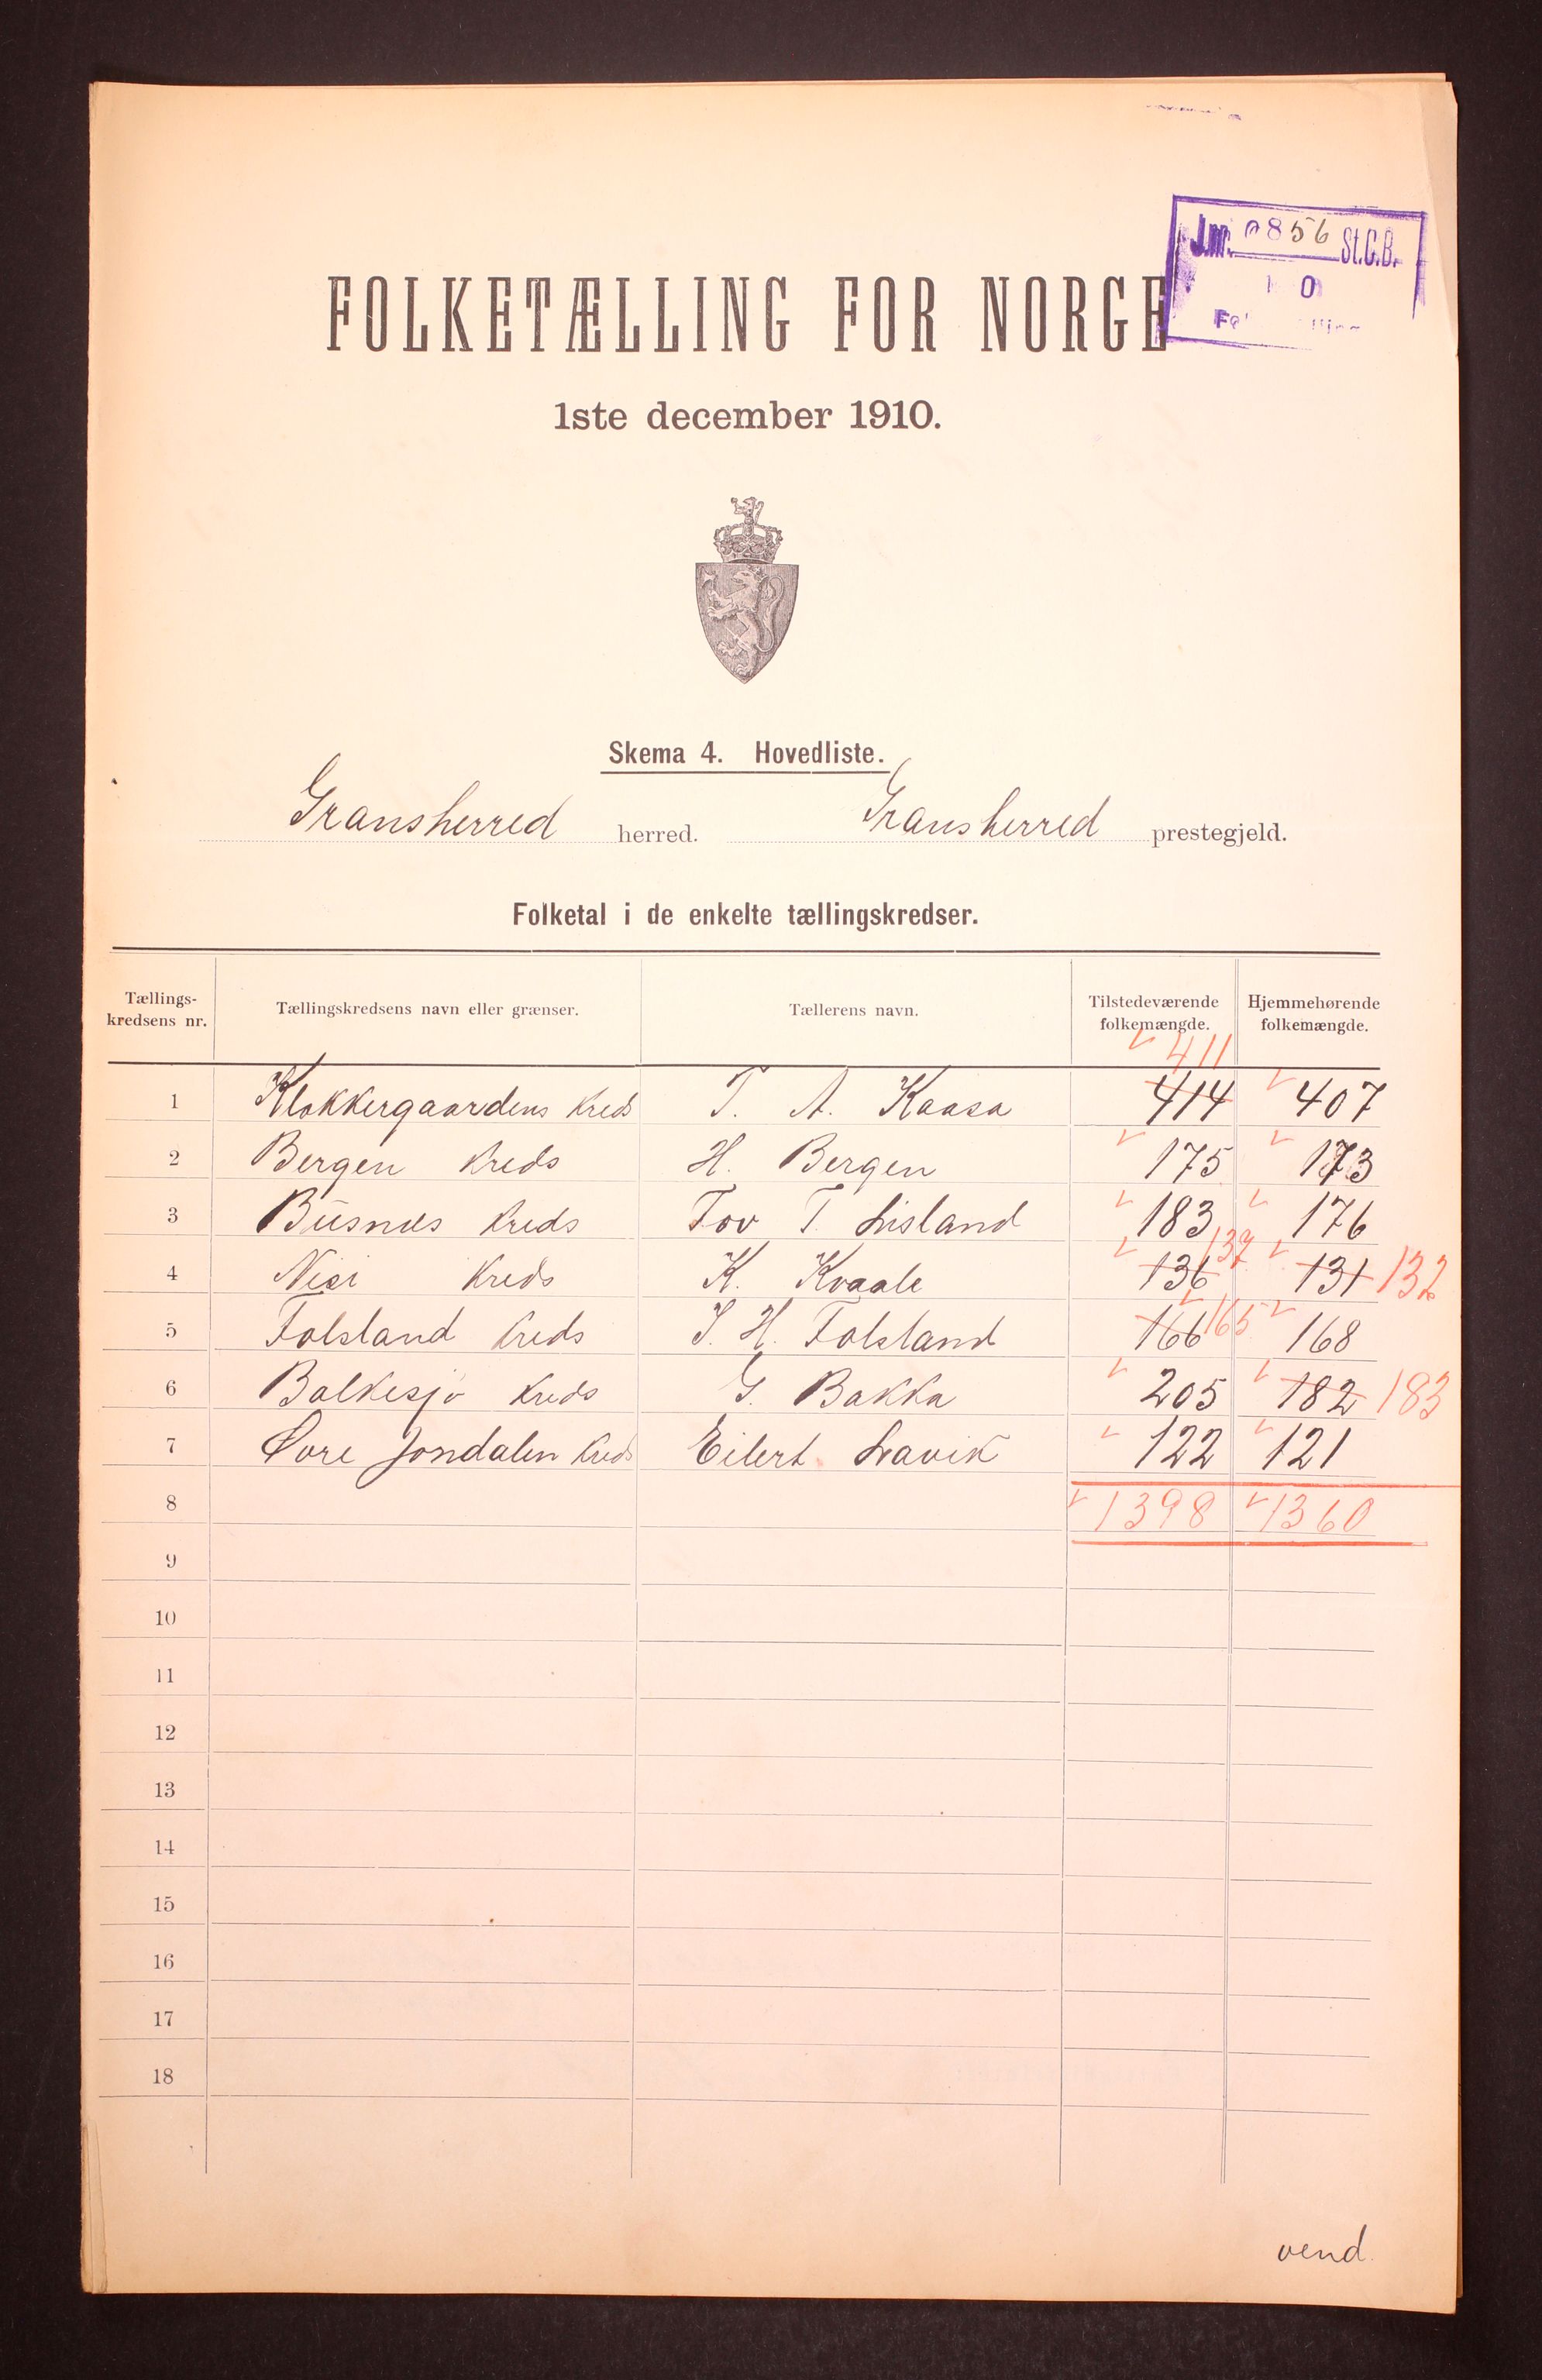 J.nr. 0856 St.C.B.
FOLKETÆLLING FOR NORGE
1ste december 1910.
Skema 4. Hovedliste.
Gransherred herred. Gransherred prestegjeld.
Folketal i de enkelte tællingskredser.
Tællings-kredsens nr. Tællingskredsens navn eller grænser. Tællerens navn. Tilstedeværende folkemængde. Hjemmehørende folkemængde.
411
1 Klokkergaardens Kreds T. A. Kaasa 414 407
2 Bergen Kreds H. Bergen 175 173
3 Busnes Kreds Tov T. Lisland 183 176
4 Kreds K. Kvaale 136 137 131 132
5 Folsland Kreds H. Folsland 166 165 168
6 Bolkesjø Kreds G. Bakka 205 182 183
7 Øvre Jondalen Kreds Eilert Lavik 122 121
8 1398 1360
9
10
11
12
13
14
15
16
17
18
vend.